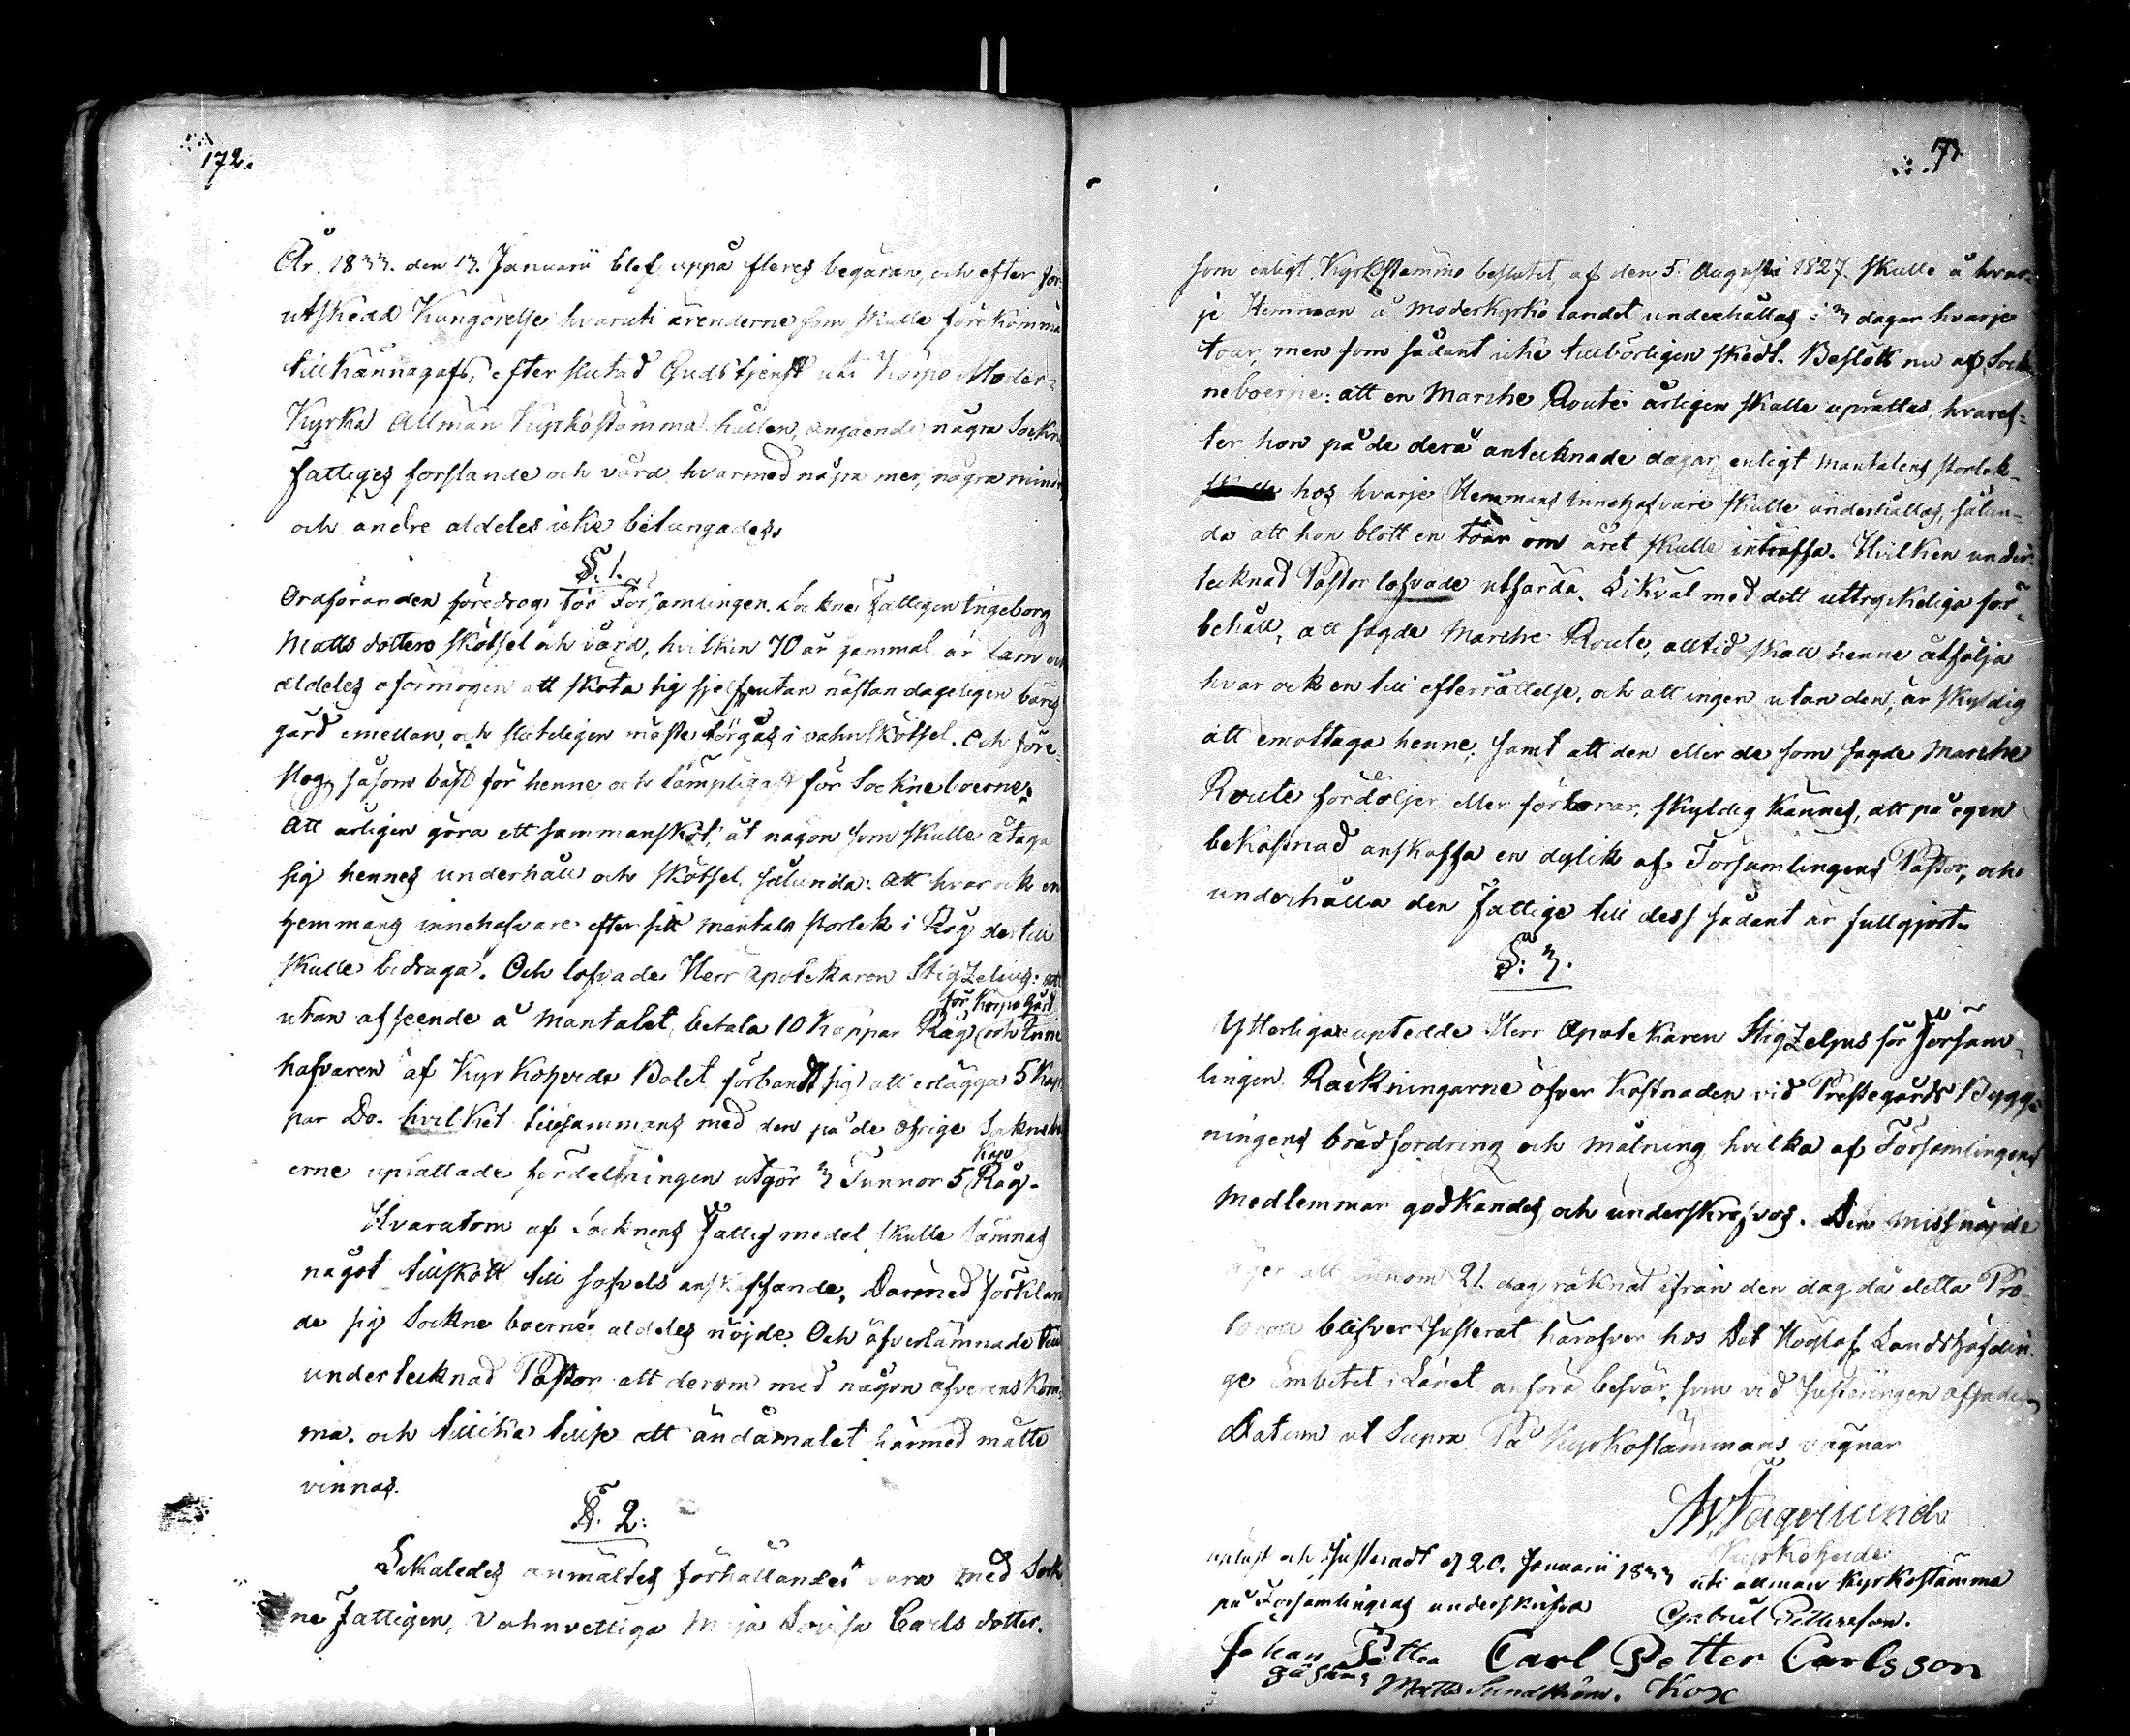 172.
År. 1833. den 13. Januarii blef uppå fleres begäran, och efter för-
utskedd Kungörelse hvaruti ärenderne som skulle förekomma
tillkännagafs, efter slutad Gudstjenst uti Korpo Moder-
Kyrka Allmän Kyrkostämma hållen, angående några Sockne
fattiges förslande och vård, hvarmed några mer, några mindre
och andre aldeles icke betungades.
§. 1.
Ordföranden föredrog för Församlingen, Sockne Fattigen Ingeborg
Matts dotters skötsel och vård, hvilken 70 år gammal är lam och
aldeles oförmögen att sköta sig sjelf, utan nästan dageligen bäres
gård emellan, och sluteligen måste förgås i vahnskötsel. Och före-
slog, såsom bäst för henne och lämpligast för Sockneboerne:
Att årligen göra ett sammanskot, åt någon som skulle åtaga
sig hennes underhåll och skötsel sålunda: att hvar och en
hemmans innehafvare efter sitt mantals storlek i Råg dertill
skulle bidraga. Och lofvade Herr Apothekaren Stigzelius: att
för Korpo Gård
utan afseende å Mantalet, betala 10 Kappar Råg, och Inne
hafvaren af Kyrkoherde Bolet förbandt sig att erlägga 5 Kap-
par Do. hvilket tillsammans med den på de öfrige Sokneb
Kapp
erne uprättade fördelningen utgör 3 Tunnor 5 Råg.
Hvarutom af Socknens Fattig medel skulle lämnas
något tillskott till sofvels anskaffande, Därmed förklara
de sig Sockne boerne aldeles nöjde. Och öfverlämnade till
undertecknad Pastor att derom med någon öfverenskom-
ma. och tillika tillse att ändamålet härmed måtte
vinnas.
§. 2:
Likaledes anmältes förhållandet vara med Sock-
ne Fattigen, Vahnvettiga Maja Lovisa Carls dotter.
173
som enligt Kyrkostämmo beslutet af den 5. Augusti 1827 skulle å hvar-
je Hemman å Moderkyrko landet underhållas i 3 dagar hvarje
tour, men som sådant icke tillbörligen skedt. Beslöts nu af Sock-
neboerne: att en Marche Route årligen skulle uprättas, hvaref-
ter hon på de derå antecknade dagar enligt Mantalens storlek
hos hvarje Hemmans Innehafvare skulle underhållas, sålun-
da att hon blott en tour om året skulle inträffa. Hvilken under-
tecknad Pastor lofvade utfärda. Likväl med dett uttryckeliga för-
behåll, att sagde Marche Route, alltid skall henne åtfölja
hvar och en till efterrättelse, och att ingen utan den, är skyldig
att emottaga henne; samt att den eller de som sagde Marche
Route fördöljer eller förlorar, skyldig kännes, att på egen
bekostnad anskaffa en dylik af Församlingens Pastor, och
underhålla den Fattige till dess sådant är fullgjort.
§: 3.
Ytterligare uptedde Herr Apotekaren Stigzelius för Försam-
lingen, Räkningarne öfver Kostnaden vid Prestegårds Bygg-
ningens brädfordring och målning hvilka af Församlingens
Medlemmar godkändes och underskrefvos. Den missnöjde
äger att innom 21. dag räknat ifrån den dag då detta Pro-
tocoll blifver Justerat häröfver hos Det Höglof. Landshöfdin-
ge Embetet i Länet anföra besvär, som vid Justeringen afsades
Datum ut Supra På Kyrkostämmans vägnar
Fagerlund
Kyrkoherde
upläst och Justeradt d 20. Januarii 1833 uti allmän Kyrkostämma
på Församlingens underskrifva Gabriel Pettersson.
Johan Petter Carl Petter Carlsson
Matts Sundström. Kox